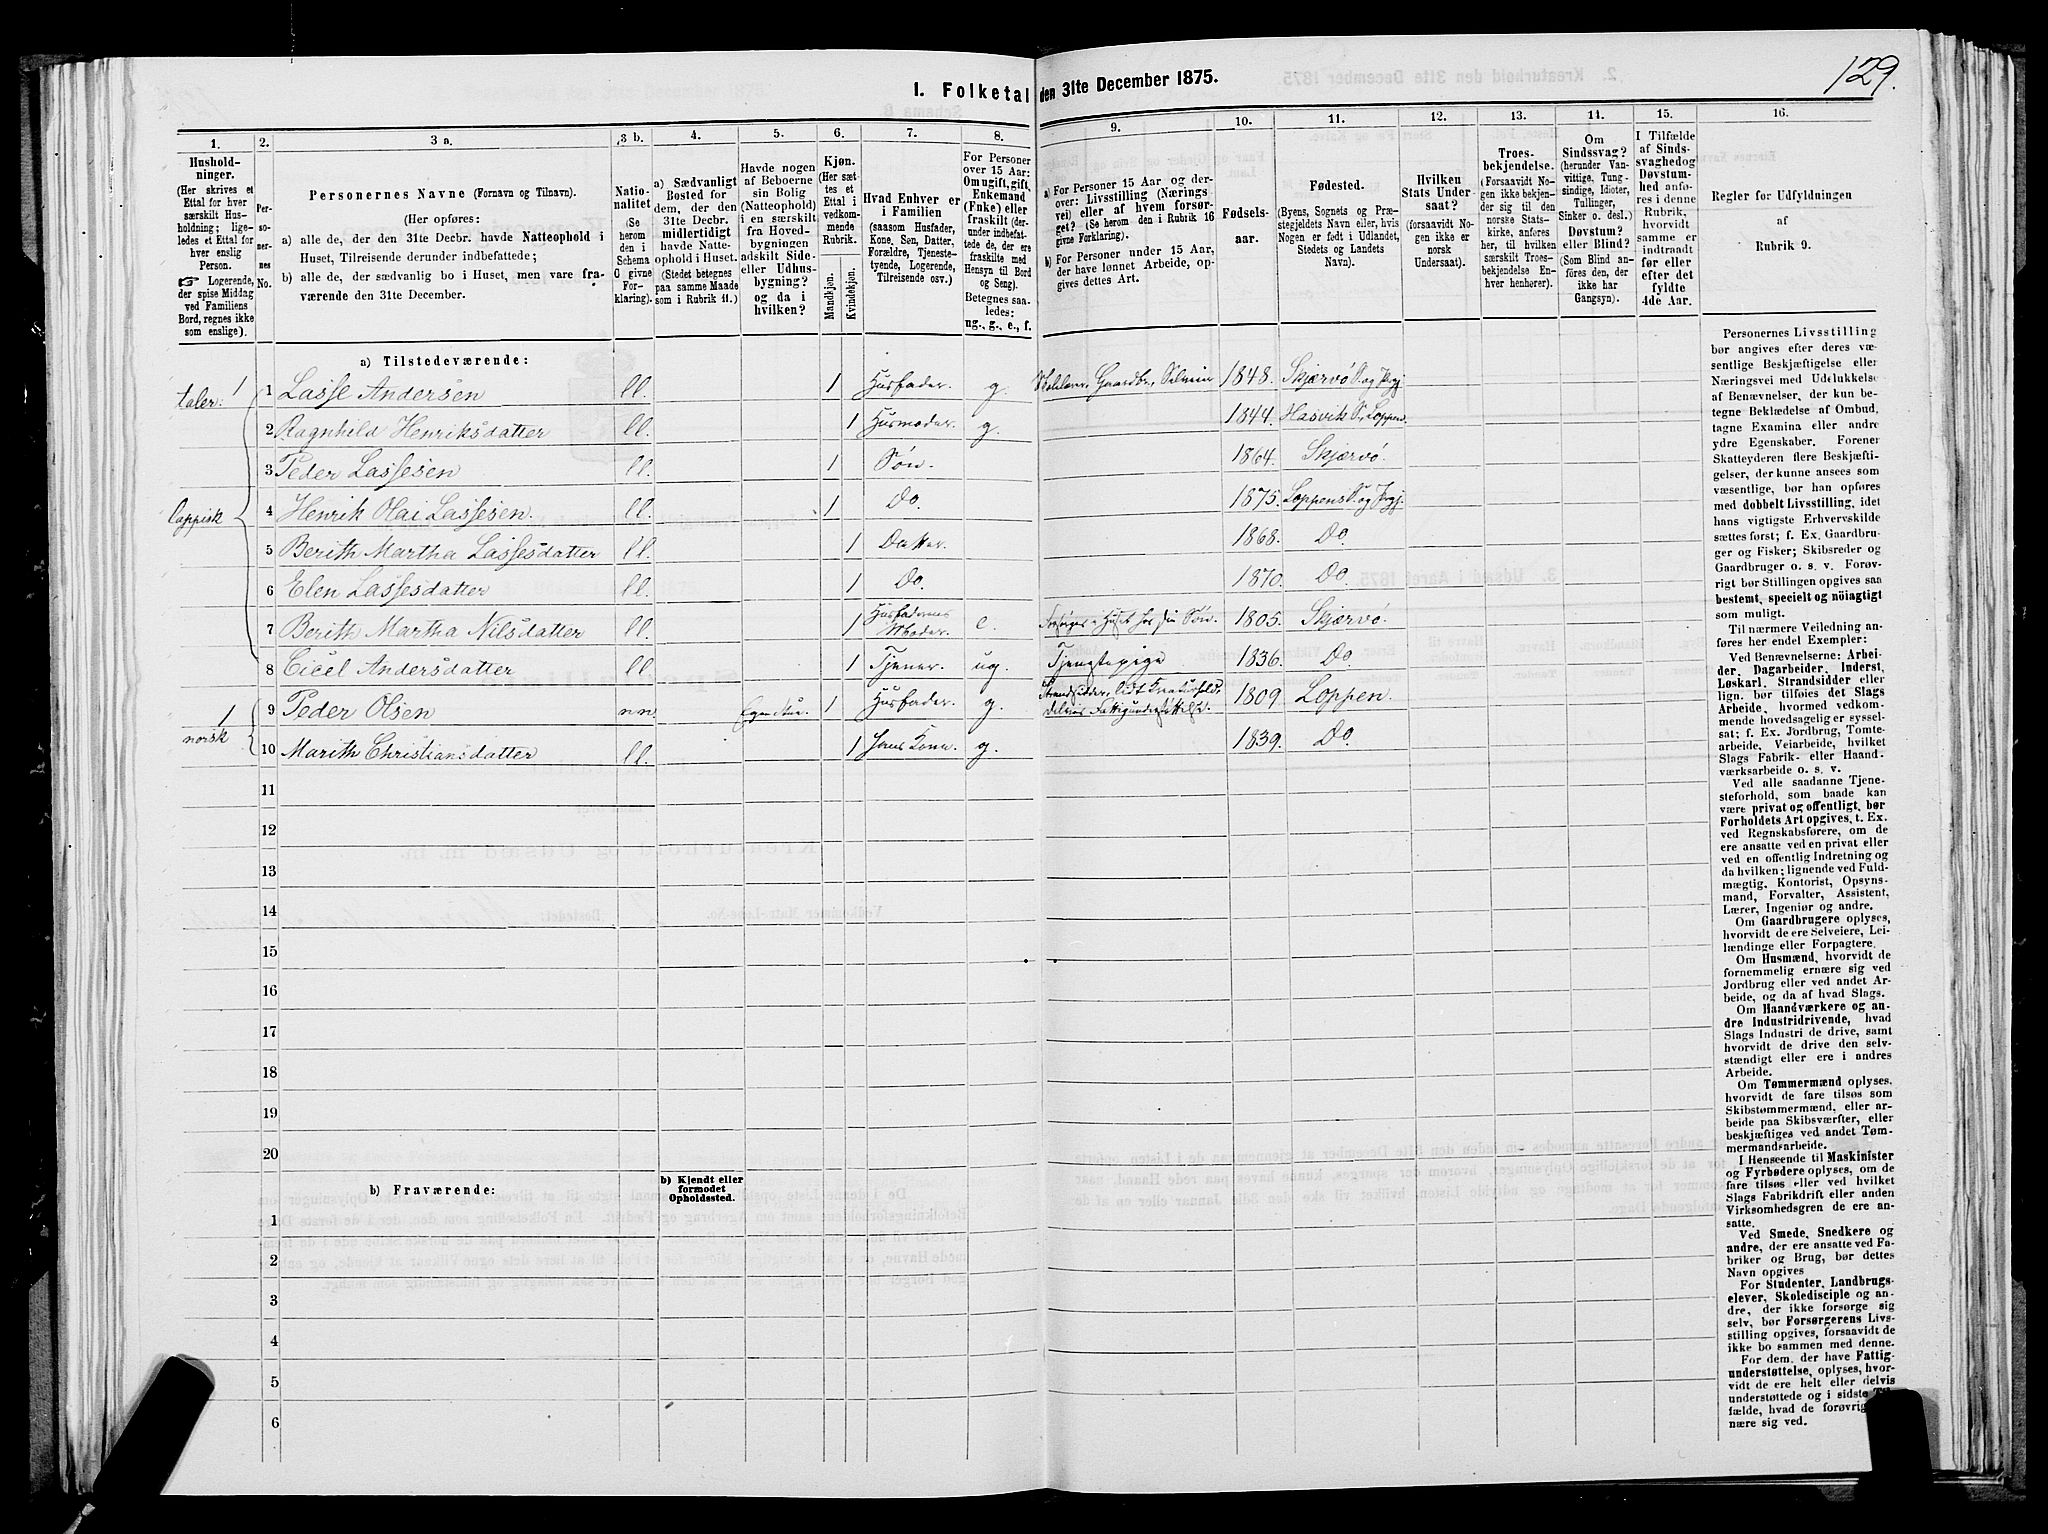 129.
I. Folketal den 31te December 1875.
1. 2. 3 a. 3 b. 4. 5. 6. 7. 8. 9. 10. 11. 12. 13. 14. 15. 16.
Hushold-
ninger.
(Her skrives et
Ettal for hver
særskilt Hus-
holdning; lige-
ledes et Ettal for
hver enslig
Person.
☞ Logerende,
der spise Middag
ved Familiens
Bord, regnes ikke
som enslige).
Per-
so-
ner-
nes
No.
Personernes Navne (Fornavn og Tilnavn).
(Her opføres:
a) alle de, der den 31te Decbr. havde Natteophold i
Huset, Tilreisende derunder indbefattede;
b) alle de, der sædvanlig bo i Huset, men vare fra-
værende den 31te December.
Natio-
nalitet
(Se
herom
den i
Schema
C givne
For-
klaring).
a) Sædvanligt
Bosted for
dem, der den
31te Decbr.
midlertidigt
havde Natte-
ophold i Huset.
(Stedet betegnes
paa samme Maade
som i Rubrik 11.)
Havde nogen
af Beboerne
sin Bolig
(Natteophold)
i en særskilt
fra Hoved-
bygningen
adskilt Side-
eller Udhus-
bygning?
og da i
hvilken?
Kjøn.
(Her sæt-
tes et
Ettal i
vedkom-
mende
Rubrik.
Mandkjøn.
Kvindekjøn.
Hvad Enhver er
i Familien
(saasom Husfader,
Kone, Søn, Datter,
Forældre, Tjeneste-
tyende, Logerende,
Tilreisende osv.)
For Personer
over 15 Aar:
Om ugift, gift,
Enkemand
(Enke) eller
fraskilt (der-
under indbefat-
tede de, der ere
fraskilte med
Hensyn til Bord
og Seng).
Betegnes saa-
ledes:
ug., g., e., f.
a) For Personer 15 Aar og der-
over: Livsstilling (Nærings-
vei) eller af hvem forsør-
get? (Se herom den i Rubrik 16
givne Forklaring).
b) For Personer under 15 Aar,
der have lønnet Arbeide, op-
gives dettes Art.
Fødsels-
aar.
Fødested.
(Byens, Sognets og Præ-
stegjeldets Navn eller, hvis
Nogen er født i Udlandet,
Stedets og Landets
Navn).
Hvilken
Stats Under-
saat?
(forsaavidt No-
gen ikke er
norsk
Undersaat).
Troes-
bekjendelse.
(Forsaavidt No-
gen ikke bekjen-
der sig til den
norske Stats-
kirke, anføres
her, til hvilken
særskilt Troes-
bekjendelse En-
hver henhører).
Om
Sindssvag?
(herunder Van-
vittige, Tung-
sindige, Idioter,
Tullinger,
Sinker o. desl.)
Døvstum?
eller Blind?
(Som Blind an-
føres den, der
ikke har
Gangsyn).
I Tilfælde
af Sinds-
svaghed og
Døvstum-
hed anfø-
res i denne
Rubrik,
hvorvidt
samme er
indtraadt
før eller
efter det
fyldte
4de Aar.
Regler for Udfyldningen
af
Rubrik 9.
a) Tilstedeværende:
taler: 1 1 Lasse Andersen ll. 1 Husfader. g. Gaardbr., Selveier 1848. Skjærvö S. og Prgj.
2 Ragnhild Henriksdatter ll. 1 Husmoder. g. 1844. Hasvik S. Loppen
3 Peder Lassesen ll. 1 Søn. 1864. Skjærvö.
lappisk 4 Henrik Olai Lassesen. ll. 1 Do. 1875. Loppens S. og Prgj.
5 Berith Martha Lassesdatter ll. 1 Datter. 1868. Do.
6 Elen Lassesdatter ll. 1 Do. 1870. Do.
7 Berith Martha Nilsdatter ll. 1 Husfaderens Moder. e. Forsörges i Huset hos sin Søn. 1805. Skjærvö.
8 Cicel Andersdatter ll. 1 Tjener. ug. Tjenestepige 1836. Do.
1 9 Peder Olsen nn. Egen Stue. 1 Husfader. g. Strandsidder, lidt Kreaturhold, delvis Fattigunderstöttelse. 1809. Loppen.
norsk 10 Marith Christiansdatter ll. 1 hans Kone. g. 1839. Do.
11
12
13
14
15
16
17
18
19
20
b) Fraværende:
b) Kjendt eller
formodet
Opholdssted.
1
2
3
4
5
6
Personernes Livsstilling
bør angives efter deres væ-
sentlige Beskjæftigelse eller
Næringsvei med Udelukkelse
af Benævnelser, der kun be-
tegne Beklædelse af Ombud,
tagne Examina eller andre
ydre Egenskaber. Forener
Skatteyderen flere Beskjæfti-
gelser, der kunne ansees som
væsentlige, bør han opføres
med dobbelt Livsstilling, idet
hans vigtigste Erhvervskilde
sættes først; f. Ex. Gaardbru-
ger og Fisker; Skibsreder og
Gaardbruger o. s. v. Forøv-
rigt bør Stillingen opgives saa
bestemt, specielt og nöiagtigt
som muligt.
Til nærmere Veiledning an-
føres her endel Exempler:
Ved Benævnelserne: Arbei-
der, Dagarbeider, Inderst,
Løskarl, Strandsidder eller
lign. bør tilføies det Slags
Arbeide, hvormed vedkom-
mende hovedsagelig er syssel-
sat; f. Ex. Jordbrug, Tomte-
arbeide, Veiarbeide, hvilket
Slags Fabrik- eller Haand-
værksarbeide o. s. v.
Ved alle saadanne Tjene-
steforhold, som baade kan
være privat og offentligt, bør
Forholdets Art opgives, t. Ex.
ved Regnskabsførere, om de
ere ansatte ved en privat eller
ved en offentlig Indretning og
da hvilken; lignende ved Fuld-
mægtig, Kontorist, Opsyns-
mand, Forvalter, Assistent,
Lærer, Ingeniør og andre.
Om Gaardbrugere oplyses,
hvorvidt de ere Selveiere, Lei-
lændinge eller Forpagtere.
Om Husmænd, hvorvidt de
fornemmelig ernære sig ved
Jordbrug eller ved andet Ar-
beide, og da af hvad Slags.
Om Haandværkere og an-
dre Industridrivende, hvad
Slags Industri de drive, samt
hvorvidt de drive den selv-
stændigt eller ere i andres
Arbeide.
Om Tømmermænd oplyses,
hvorvidt de fare tilsøs som
Skibstømmermænd, eller ar-
beide paa Skibsværfter, eller
beskjæftiges ved andet Tøm-
mermandsarbeide.
I Henseende til Maskinister
og Fyrbødere oplyses, om de
fare tilsøs eller ved hvilket
Slags Fabrikdrift eller anden
Virksomhedsgren de ere an-
satte.
Ved Smede, Snedkere og
andre, der ere ansatte ved Fa-
briker og Brug, bør dettes
Navn opgives
For Studenter, Landbrugs-
elever, Skoledisciple og an-
dre, der ikke forsørge sig
selv, bør Forsørgerens Livs-
stilling opgives, forsaavidt de
ikke bo sammen med denne.
For dem, der have Fattig-
understøttelse, oplyses, hvor-
vidt de ere helt eller delvis
understøttede og i sidste Til-
fælde, hvad de forøvrigt er-
nære sig ved.